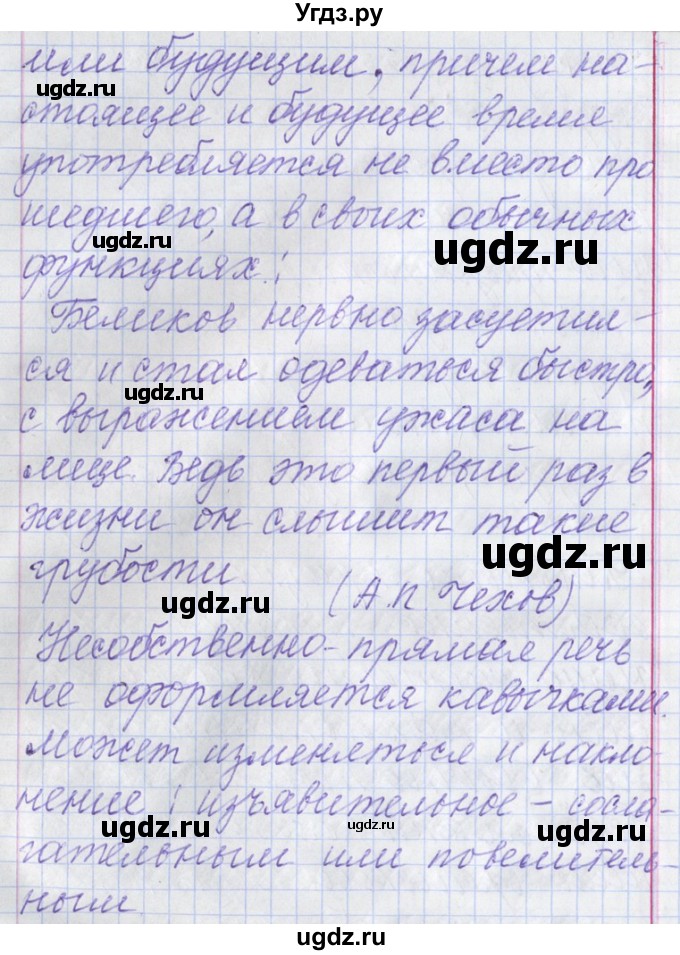 Угдз.ру
или будущим, причем на-
стоящее и будущее время
употребляется не вместо про
шедшего, а в своих обычных
ugdz.ru
ugdz.ru
функциях:
Беликов нервно засуетил-
ся и стал одеваться быстро,
ugdz.ru
ugdz.ru
с выражением ужаса на
лице. Ведь это первый раз в
жизни он слышит такие
ugdz.ru
грубости.
ugdz.ru
(А.П Чехов)
Несобственно-прямая речь
не оформляется кавычками.
Может изменяться и накло-
нение: изъявительное - сосла-
ugdz.ru
ugdz.ru
ugdz.ru
гательным или повелитель-
ным.
ugdz.ru